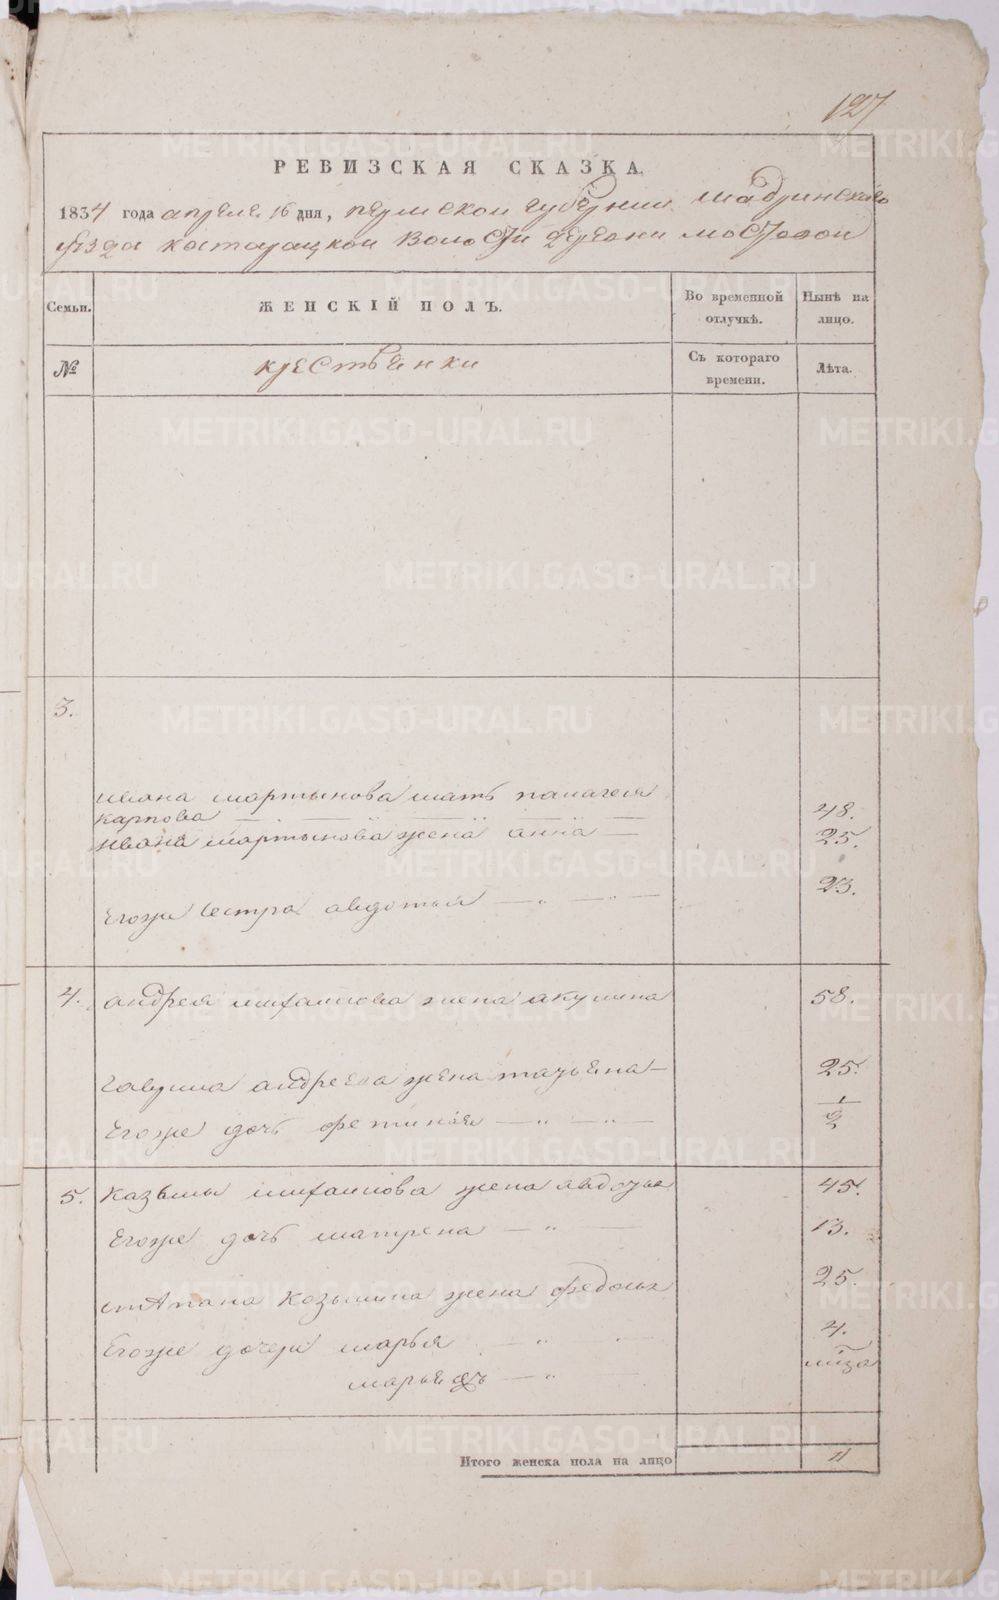 127
РЕВИЗСКАЯ СКАЗКА
1834 года апреле 16 дня, пермской губернии Шадринскаго
уезда катарацкой Волости деревни мостовой
Семьи. ЖЕНСКІЙ ПОЛЪ. Во временной отлучкѣ. Нынѣ на лицо.
№ крестьенки Съ котораго времени. Лѣта.
3.
ивана мартынова мать палагея
карпова — 48.
ивана мартынова жена анна — 25.
Егоже сестра авдотья — 23.
4. андрея михаилова жена акулина 58.
гаврила андреева жена татьена — 25.
Егоже дочь фетинья — 1/2
5. казьмы михаилова жена авдотья 45.
Егоже дочь матрена — 13.
степана козьмина жена федосья 25.
Егоже дочери марья — 4.
Итого женска пола на лицо 11
METRIKI.GASO-URAL.RU